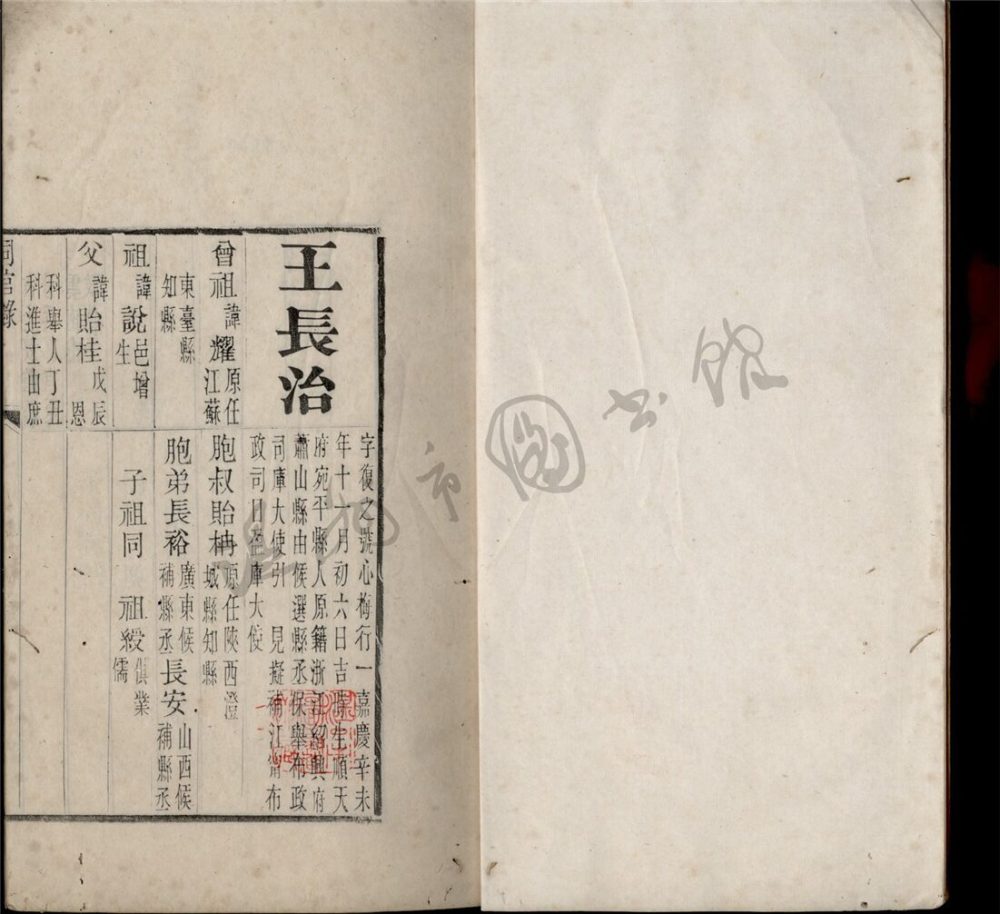 王長治
字復之號心梅行一嘉慶辛未
年十一月初六日吉時生順天
府宛平縣人原籍浙江紹興府
蕭山縣由候選縣丞保舉布政
司庫大使引 見擬補江甯布
政司日盈庫大使
曾祖諱耀原任江蘇
東臺縣
知縣
祖諱說邑增
生
父諱貽桂戊辰 恩
科舉人丁丑
科進士由庶
胞叔貽 原任陝西
城縣知縣
胞弟長裕廣東候補縣丞 長安山西候補縣丞
子祖同 祖綬俱業儒
同官錄
市圖書館